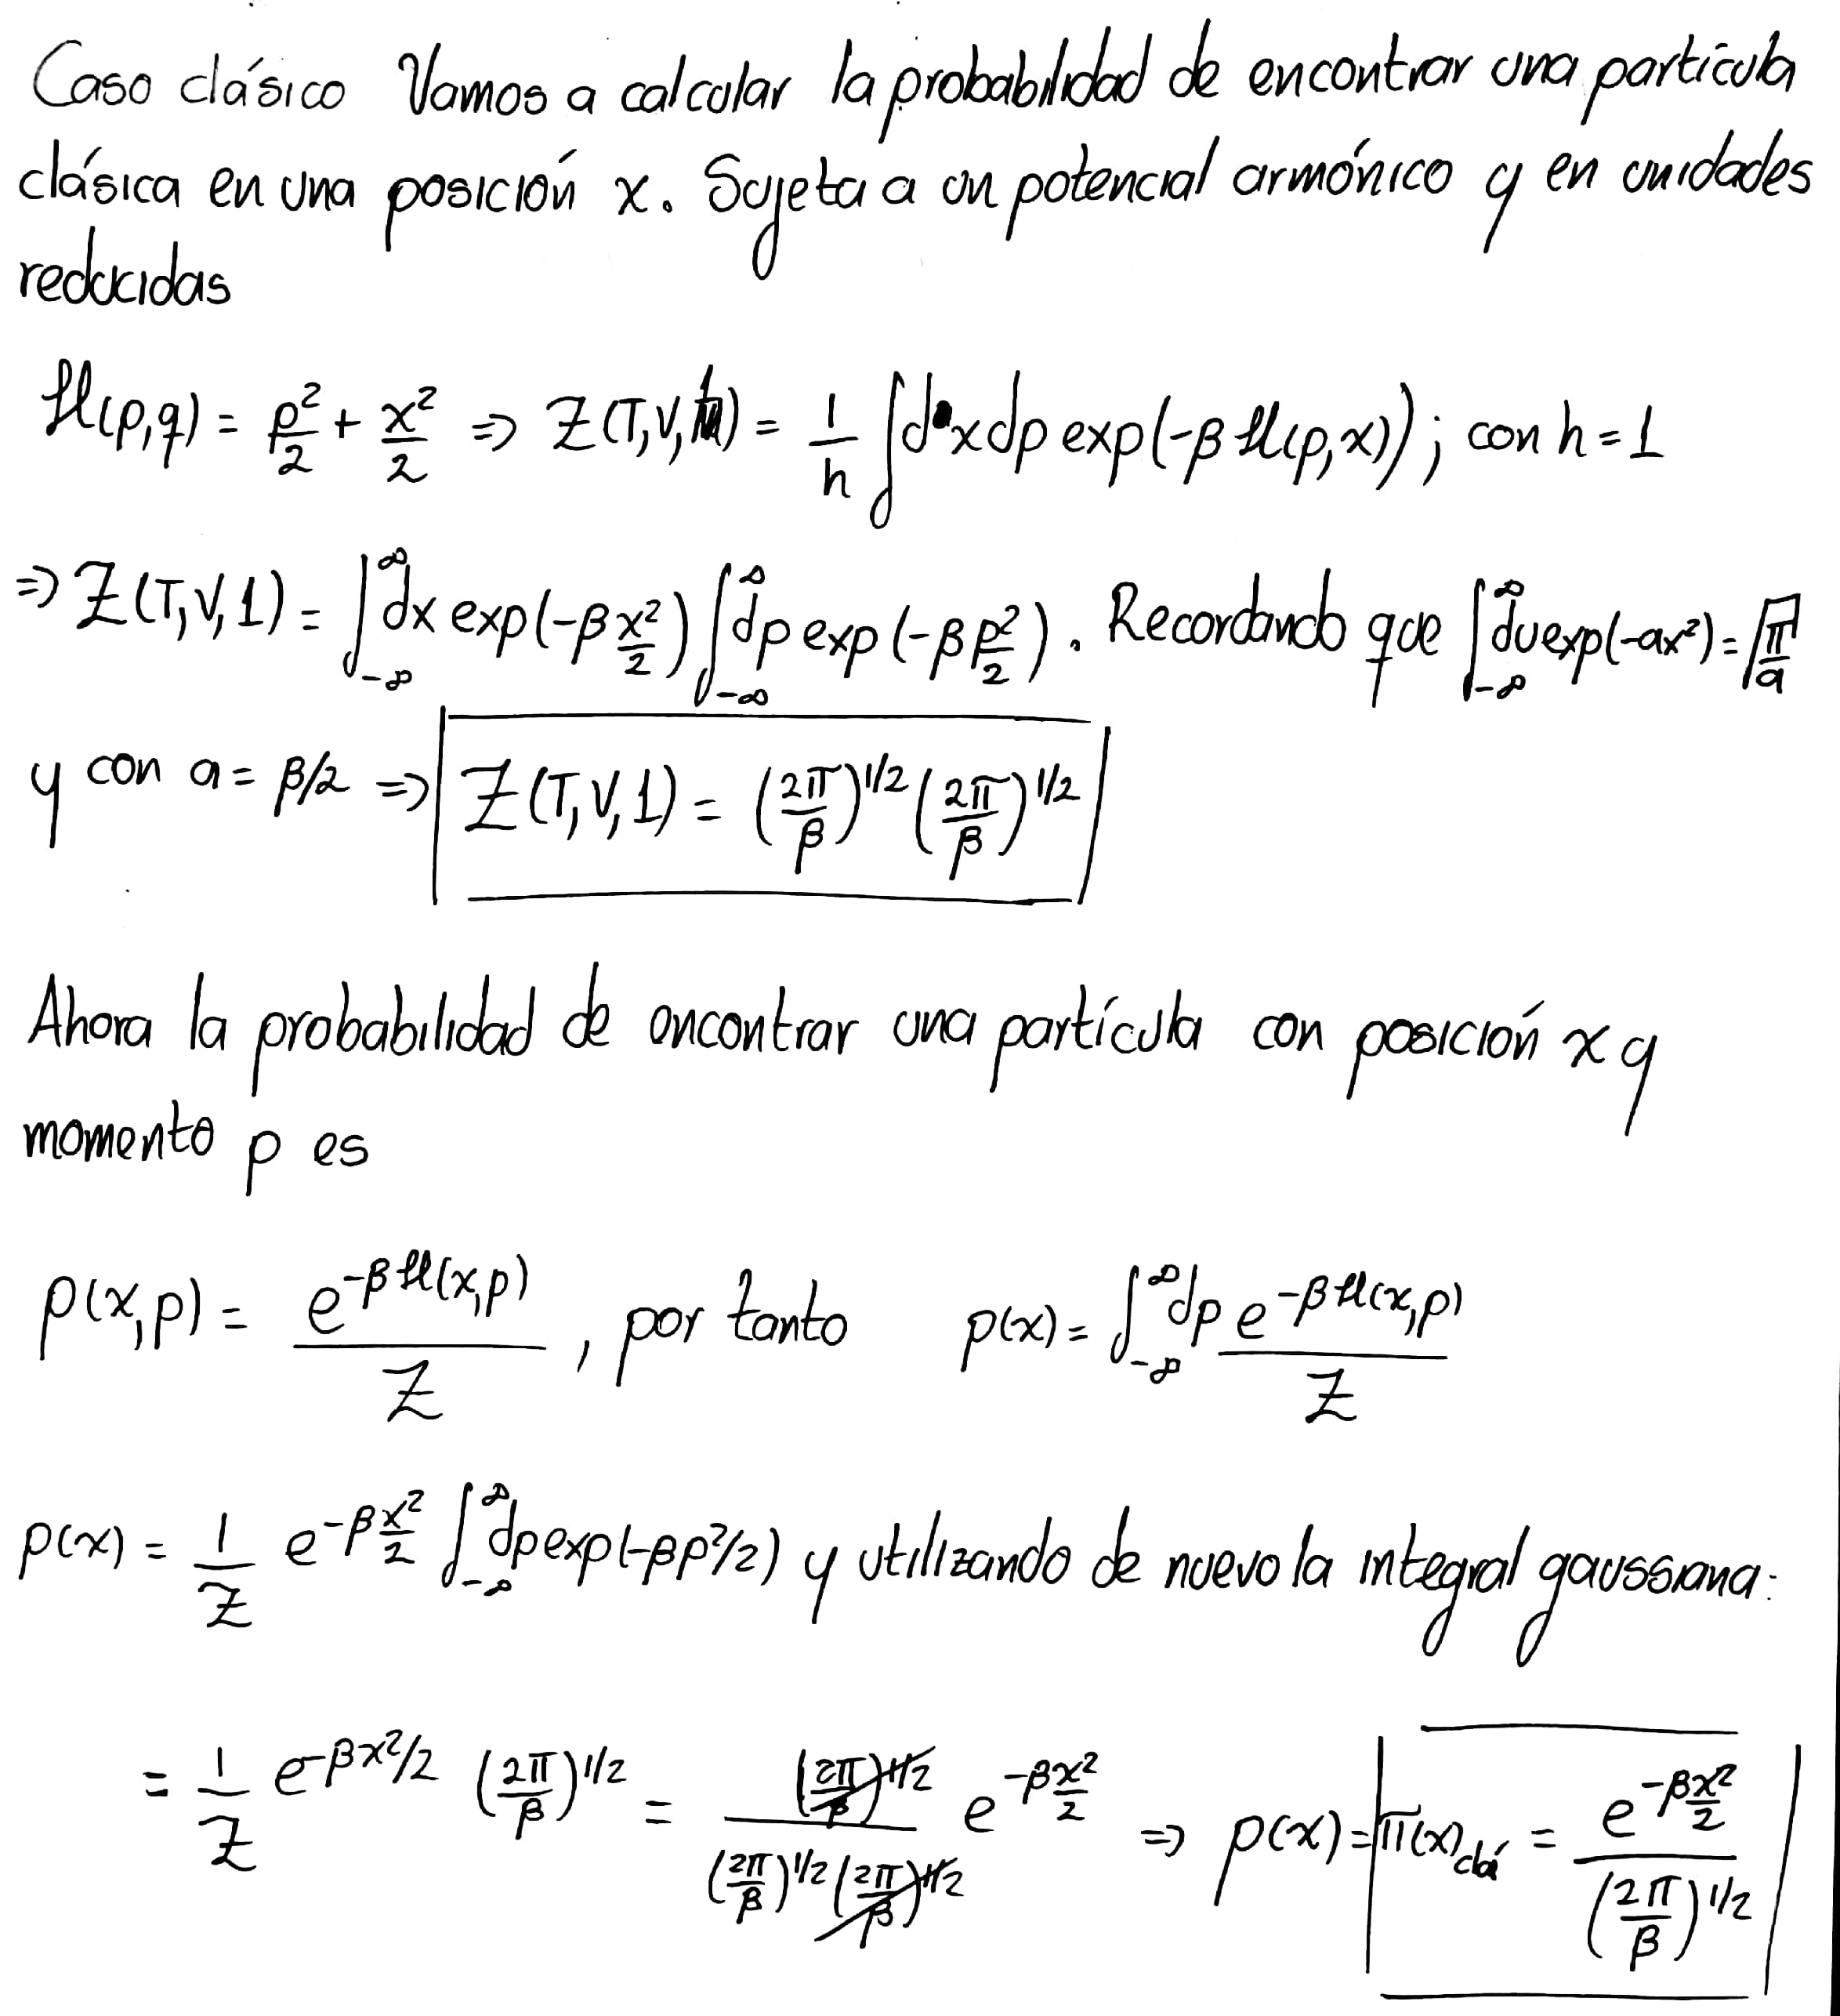 Caso clásico Vamos a calcular la probabilidad de encontrar una partícula
clásica en una posición x. Sujeta a un potencial armónico y en unidades
reducidas
H(p,q) = p²/2 + x²/2 ⇒ Z(T,V,1) = 1/h ∫dxdp exp(-βH(p,x)); con h=1
⇒ Z(T,V,1) = ∫_{-∞}^{∞} dx exp(-β x²/2) ∫_{-∞}^{∞} dp exp(-β p²/2). Recordando que ∫_{-∞}^{∞} du exp(-ax²) = √(π/a)
y con a = β/2 ⇒ Z(T,V,1) = (2π/β)^{1/2} (2π/β)^{1/2}
Ahora la probabilidad de encontrar una partícula con posición x y
momento p es
p(x,p) = e^{-βH(x,p)} / Z, por tanto p(x) = ∫_{-∞}^{∞} dp e^{-βH(x,p)} / Z
p(x) = 1/Z e^{-β x²/2} ∫_{-∞}^{∞} dp exp(-βp²/2) y utilizando de nuevo la integral gaussiana:
= 1/Z e^{-βx²/2} (2π/β)^{1/2} = (2π/β)^{1/2} / ((2π/β)^{1/2} (2π/β)^{1/2}) e^{-β x²/2} ⇒ p(x) = π(x)_{clá} = e^{-β x²/2} / (2π/β)^{1/2}